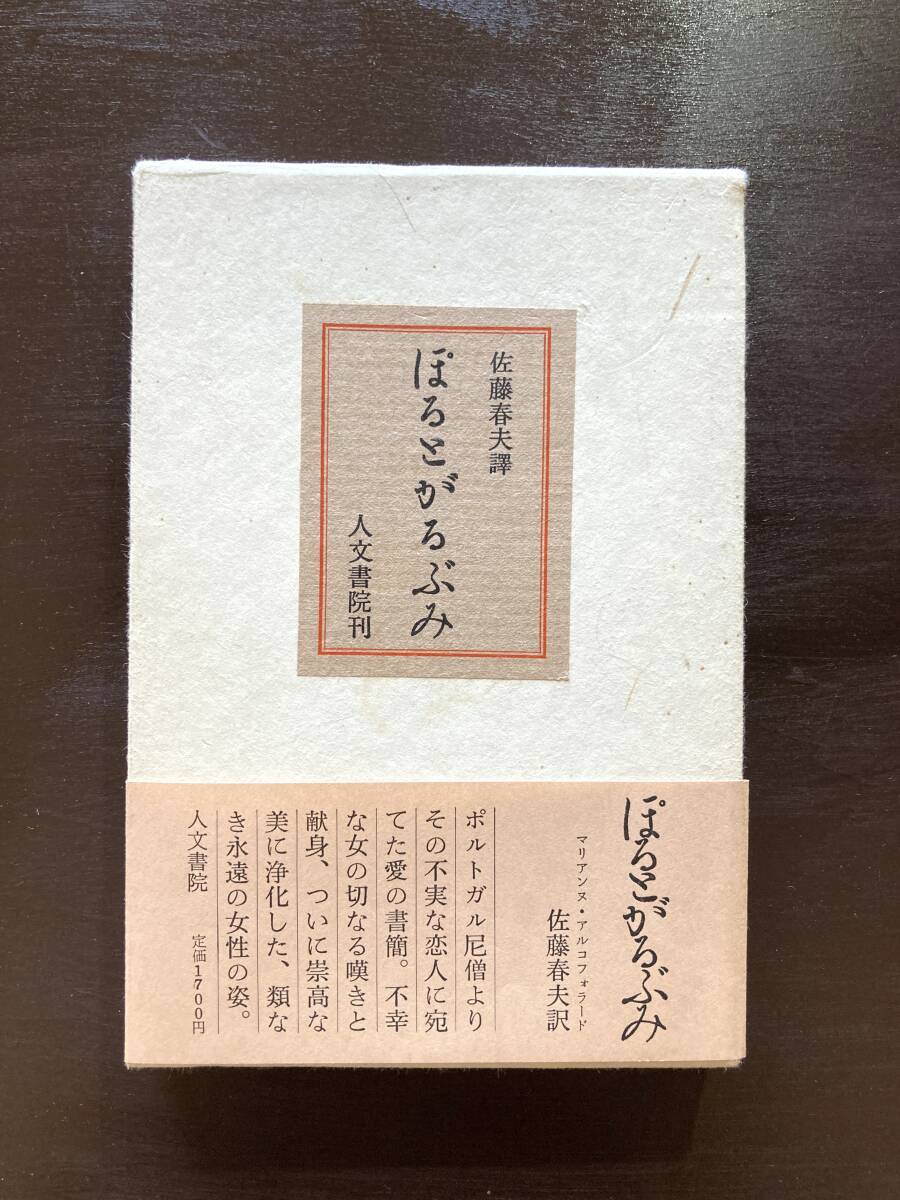 佐藤春夫譯
ぽるとがるぶみ
人文書院刊
ぽるとがるぶみ
マリアンヌ・アルコフォラード
佐藤春夫訳
ポルトガル尼僧より
その不実な恋人に宛
てた愛の書簡。不幸
な女の切なる嘆きと
献身、ついに崇高な
美に浄化した、類な
き永遠の女性の姿。
人文書院
定価1700円